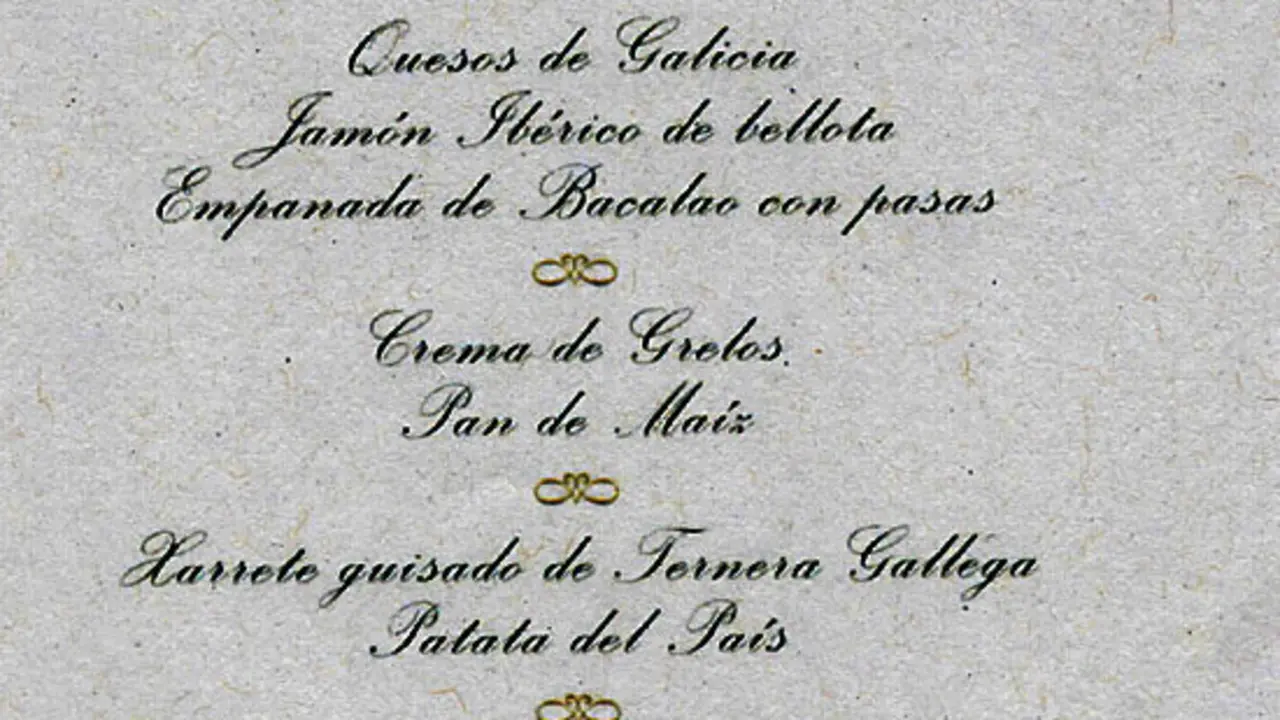 Quesos de Galicia
Jamón Ibérico de bellota
Empanada de Bacalao con pasas
Crema de Grelos.
Pan de Maíz
Xarrete guisado de Ternera Gallega
Patata del País